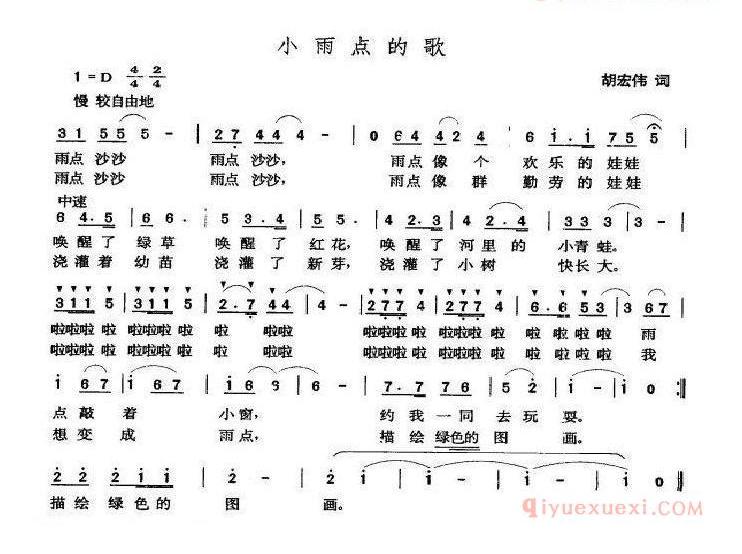 小雨点的歌
1=D 4/4 2/4
胡宏伟 词
慢 较自由地
3 1 5 5 5 - | 2 7 4 4 4 - | 0 6 4 4 2 4 | 6 i . i 7 5 5
雨点 沙沙 雨点 沙沙, 雨点 像 个 欢 乐 的 娃娃
雨点 沙沙 雨点 沙沙, 雨点 像 群 勤 劳 的 娃娃
中速
6 4 . 5 | 6 6 . | 5 3 . 4 | 5 5 . | 4 2 . 3 | 4 2 . 4 | 3 3 3 | 3 - |
唤 醒 了 绿 草 唤 醒 了 红 花, 唤 醒 了 河 里 的 小 青 蛙。
浇 灌 着 幼 苗 浇 灌 了 新 芽, 浇 灌 了 小 树 快 长 大。
3 1 1 5 | 3 1 1 5 | 2 . 7 4 4 | 4 - | 2 7 7 4 | 2 7 7 4 | 6 . 6 5 3 | 3 6 7 |
啦啦啦 啦 啦啦啦 啦 啦 啦啦 啦啦啦 啦 啦啦啦 啦 啦 啦 啦啦 雨
啦啦啦 啦 啦啦啦 啦 啦 啦啦 啦啦啦 啦 啦啦啦 啦 啦 啦 啦啦 我
i 6 7 | i 6 7 | i 6 3 | 6 - | 7 . 7 7 6 | 5 2 | i - | i 0 :||
点 敲 着 小 窗, 约 我 一 同 去 玩 耍。
想 变 成 雨 点, 描 绘 绿色的 图 画。
2 2 2 i i | 2 - | 2 - | i - | i - | i - | i 0 ||
描 绘 绿 色 的 图 画。
qiyuexuexi.com